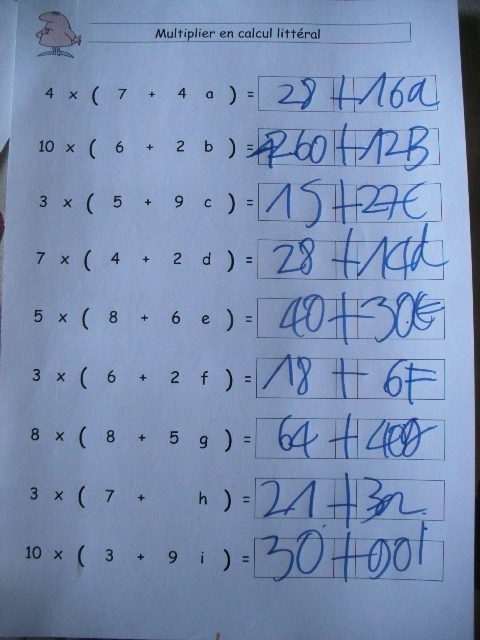 Multiplier en calcul littéral
4 x ( 7 + 4 a ) = 28 + 16a
10 x ( 6 + 2 b ) = 60 + 12B
3 x ( 5 + 9 c ) = 15 + 27C
7 x ( 4 + 2 d ) = 28 + 14d
5 x ( 8 + 6 e ) = 40 + 30e
3 x ( 6 + 2 f ) = 18 + 6F
8 x ( 8 + 5 g ) = 64 + 40g
3 x ( 7 + h ) = 21 + 3h
10 x ( 3 + 9 i ) = 30 + 90i